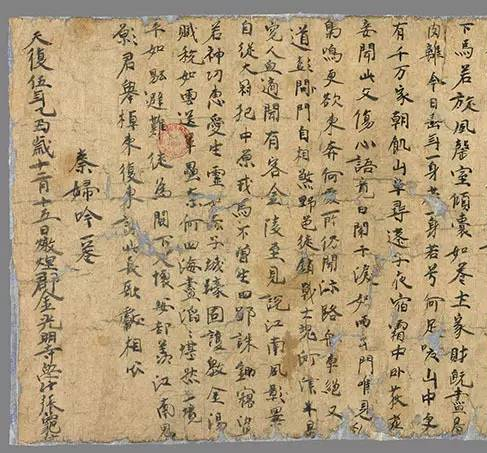 下馬若旋風罄室傾囊如卷土家財既盡骨
肉離今日垂年一身苦一身苦兮何足嗟山中更
有千万家朝飢山草尋蓬子夜宿霜中卧荻花
妾聞此父傷心語竟日闌干淚如雨出門唯見亂
梟鳴更欲東奔何處所仍聞汴路舟車絕又
道彭門自相煞野色徒銷戰士魂河津半是
冤人血適聞有客金陵至見說江南風景異
自從大寇犯中原戎馬不曾生四鄙誅鋤竊盜
若神功惠愛生靈如赤子城壕固護教金湯
賦稅如雲送軍壘奈何四海盡滔滔湛然一境
平如砥避難徒為闕下人懷安却羨江南鬼
願君舉棹東復東詠此長歌獻相公
秦婦吟一卷
天復伍年乙丑歲十二月十五日燉煌郡金光明寺學仕張龜